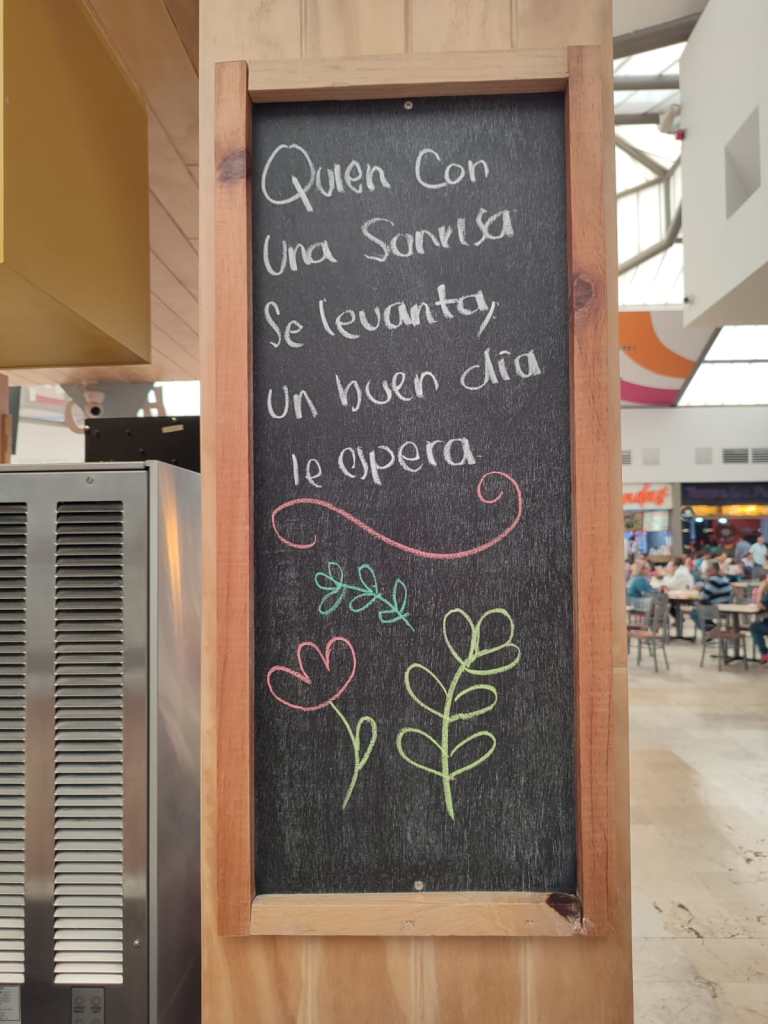 Quien Con
una Sonrisa
Se levanta,
un buen día
le espera.